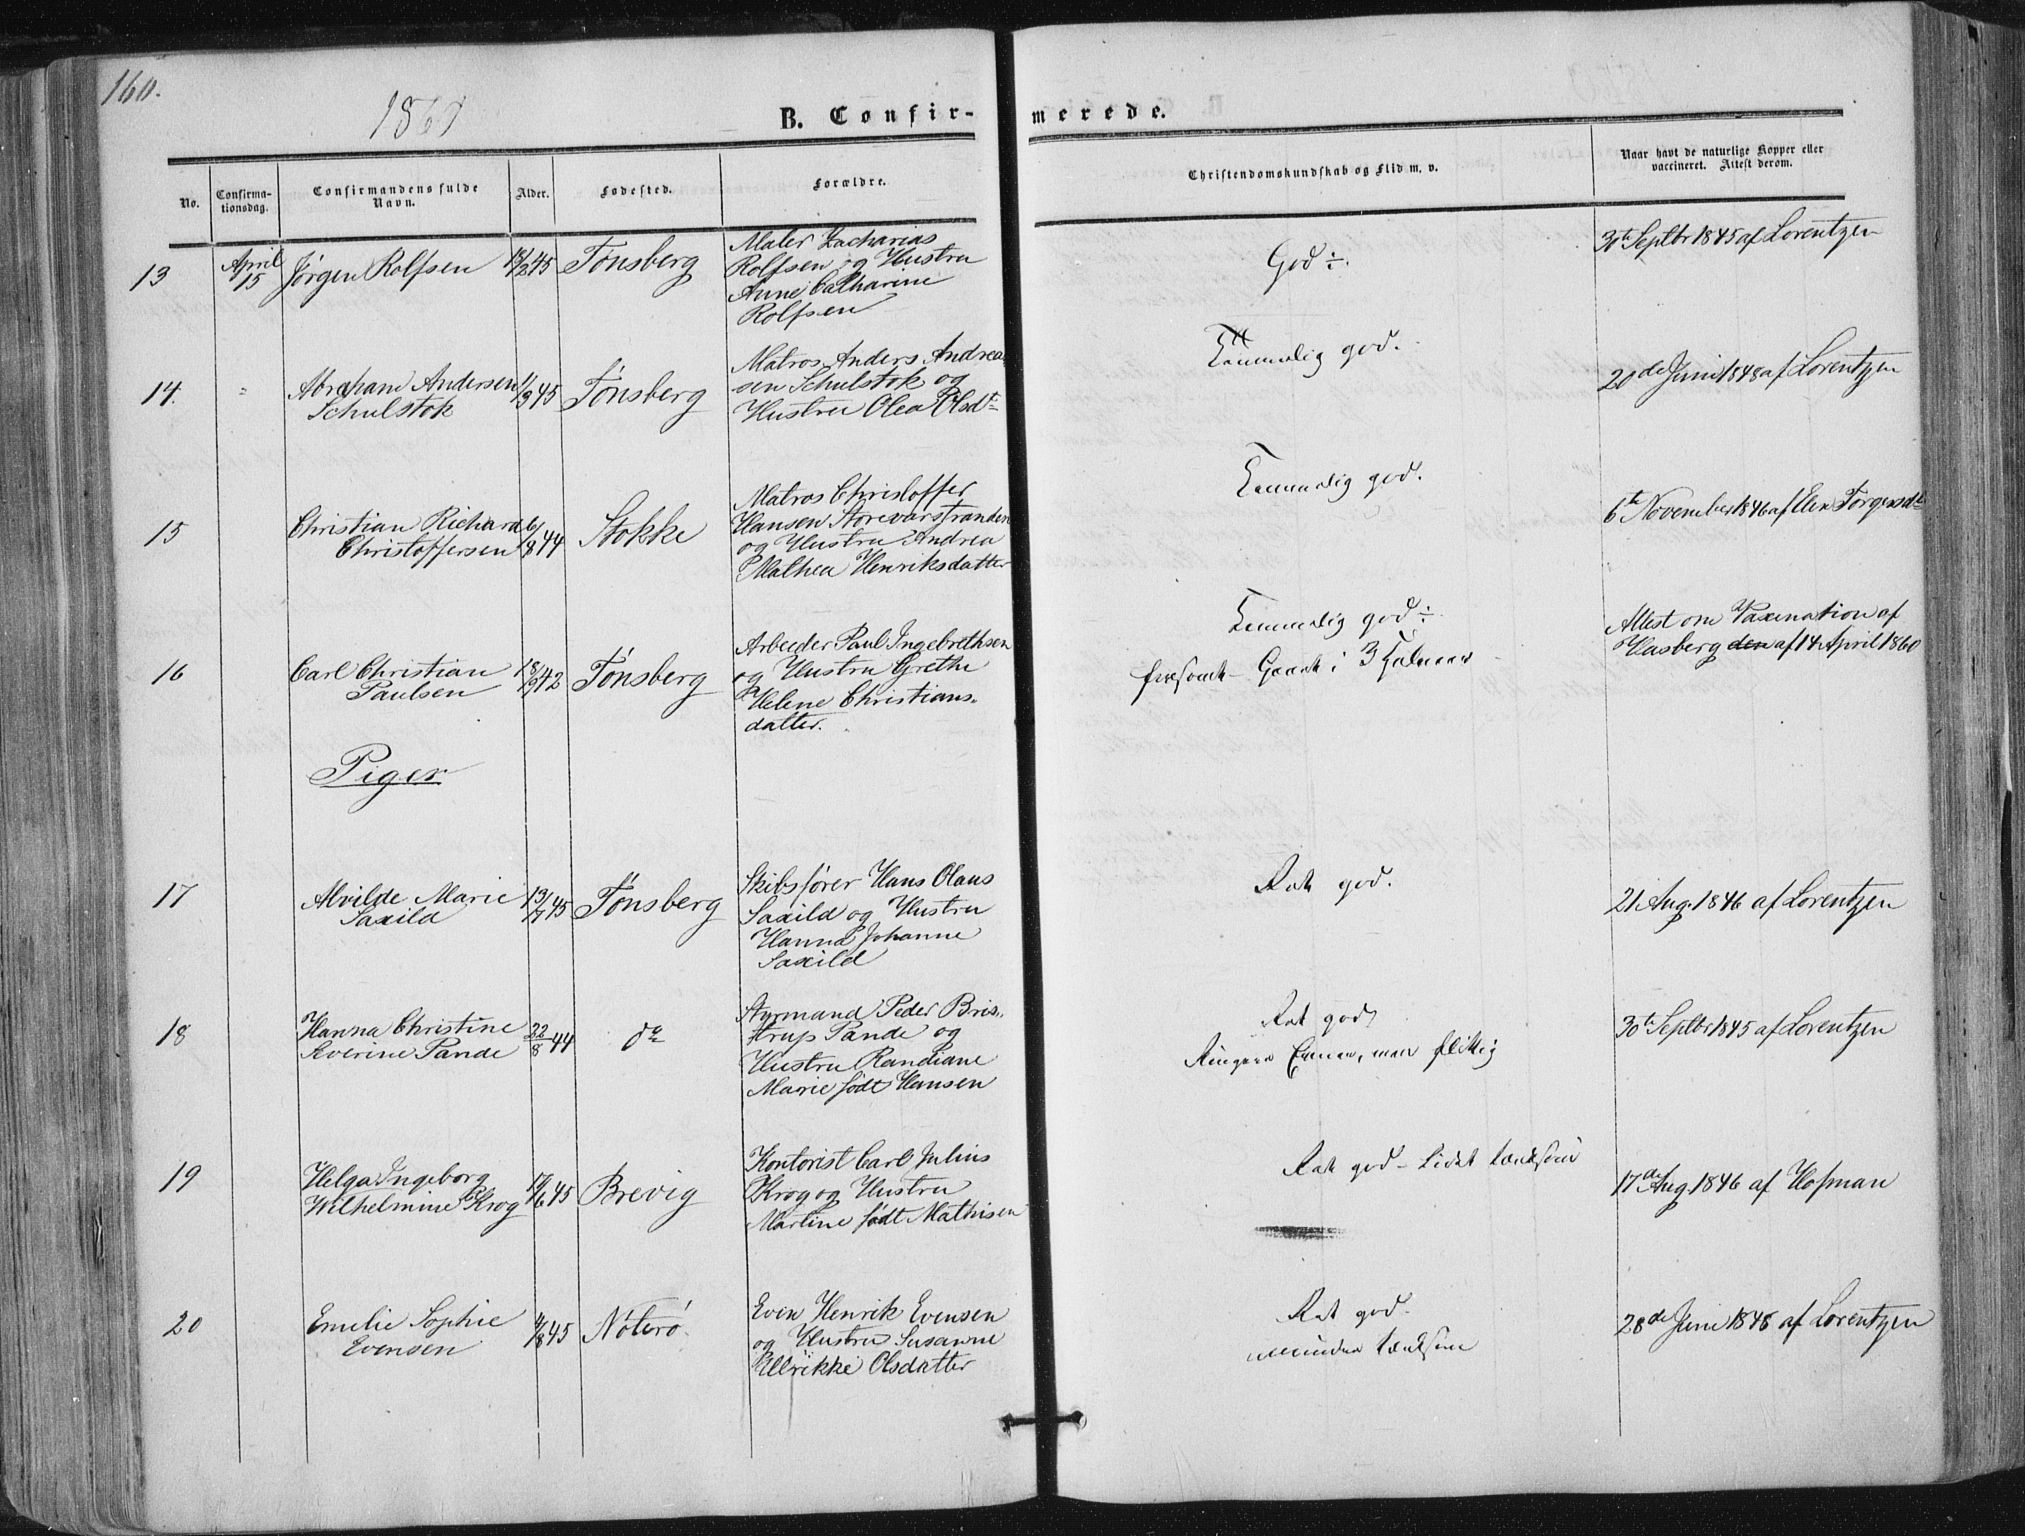 160.
1860
B. Confir-
merede.
No.
Confirma-
tionsdag.
Confirmandens fulde
Navn.
Alder.
Fødested.
Forældre.
Christendomskundskab og Flid m. v.
Naar havt de naturlige Kopper eller
vaccineret. Attest derom.
13
April
15
Jörgen Rolfsen
45
Tönsberg
Maler Zacharias
Rolfsen og Hustru
Anne Catharine
Rolfsen
God ÷.
30te Septbr 1845 af Lorentzen
14.
Abraham Andersen
Schulstok
45
Tönsberg
Matros Anders Andrea-
sen Schulstok og
Hustru Olea Olsdtr
Temmelig god.
20de Juni 1848 af Lorentzen
15
Christian Richard
Christoffersen
6/8 44
Stokke
Matros Christoffer
Hansen Storevarstranden
og Hustru Andrea
Mathea Henriksdatter
Temmelig god.
6te November 1846 af Elen
16
Carl Christian
Paulsen
18/9 42
Tönsberg
Arbeider Paul Ingebrethsen
og Hustru Grethe
Helene Christians-
datter.
Temmelig god ÷.
forsömt - i 3
Attest om Vaxination af
Hasberg den af 14 April 1860
Piger
17
Alvilde Marie
Saxild
13/7 45
Tönsberg
Skibsförer Hans Olaus
Saxild og Hustru
Hanna Johanne
Saxild
Ret god.
21 Aug. 1846 af Lorentzen
18
Hanna Christine
Severine Pande
22/8 44
do
Styrmand Peder Bris-
trup Pande og
Hustru Randiane
Marie födt Hansen
Ret god,
Ringere Evner, men flittig
30te Septbr 1845 af Lorentzen
19
Helga Ingeborg
Wilhelmine Krog
17/6 45
Brevig
Kontorist Carl Julius
Krog og Hustru
Martine födt Mathisen
Ret god - Lidet tænksom
17de Aug. 1846 af Hofman
20
Emelie Sophie
Evensen
4/8 45
Nöterö
Even Henrik Evensen
og Hustru Susanne
Ullrikke Olsdatter
Ret god.
mindre tænksom
28de Juni 1848 af Lorentzen